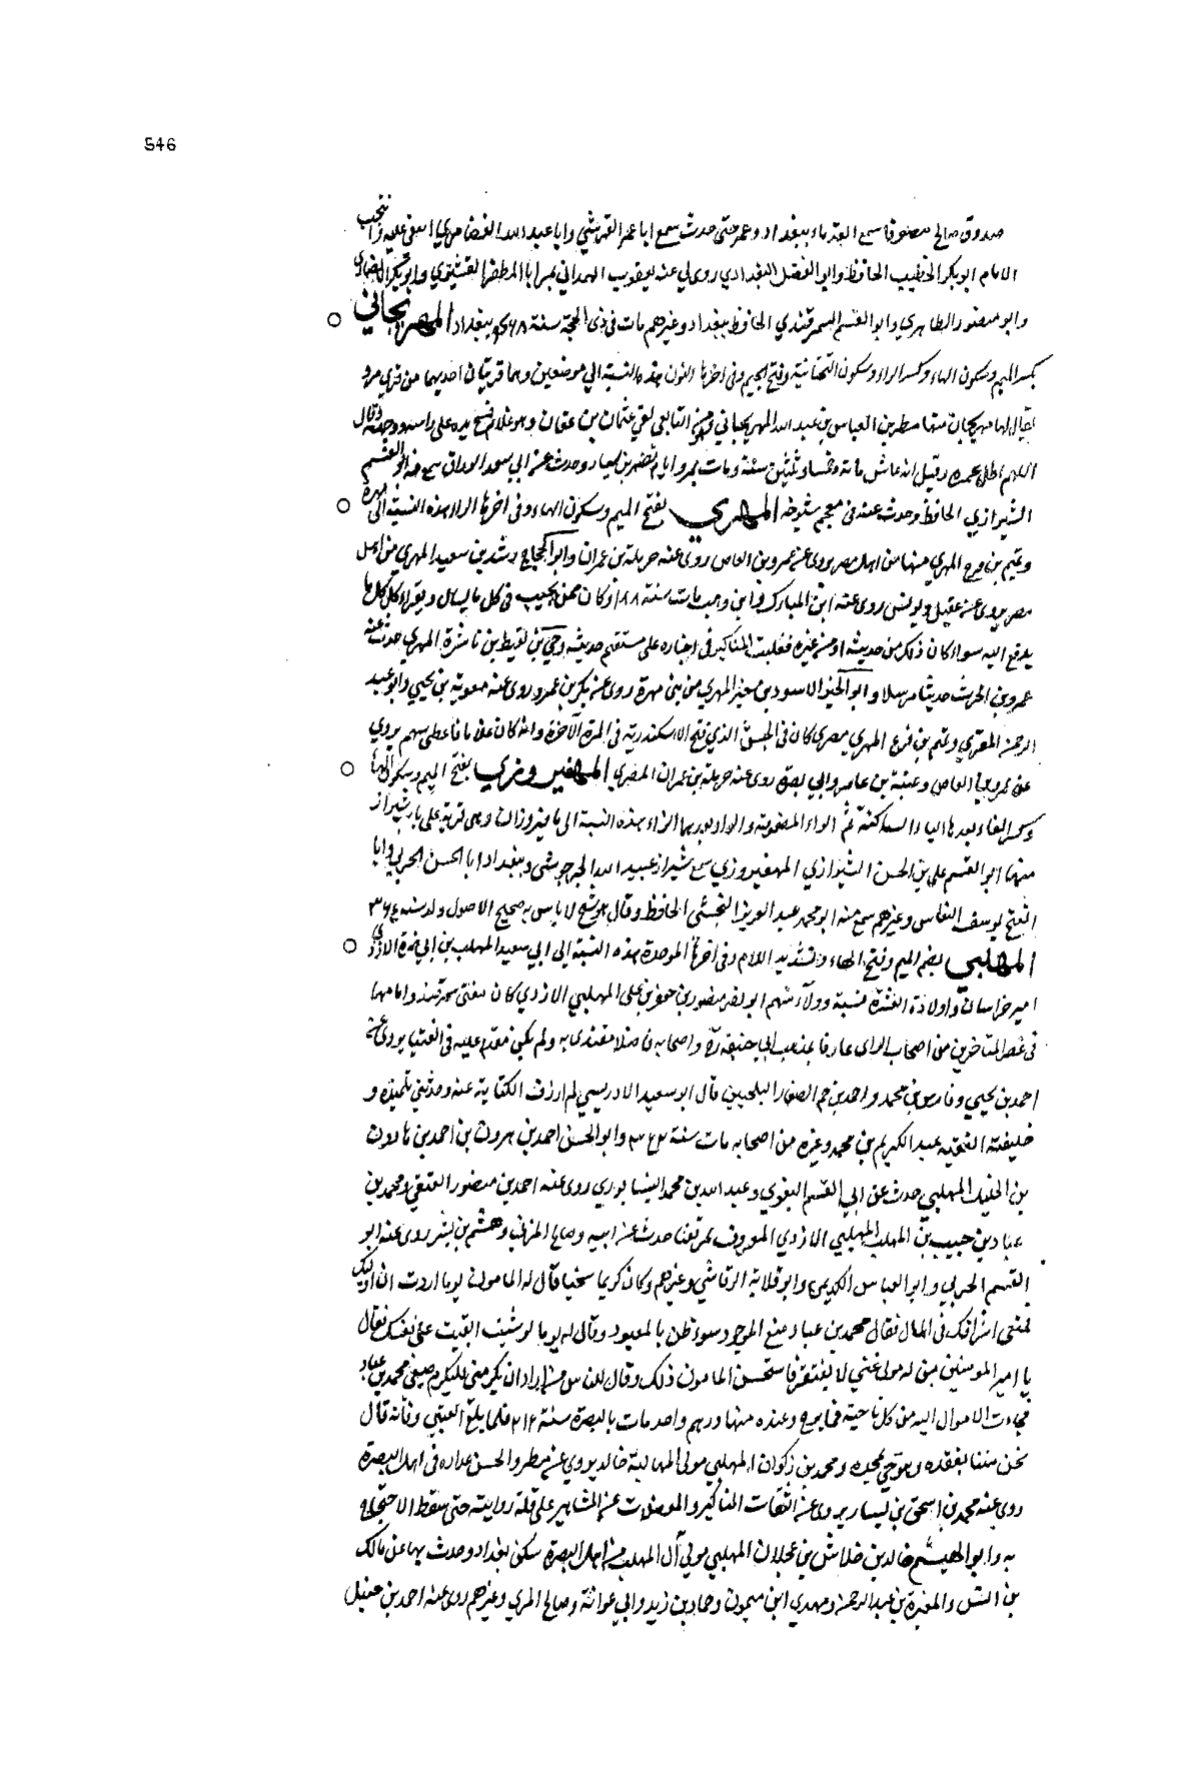 546
صدوق صالح متصوفا سمع القدماء ببغداد وعمر حتى حدث سمع ابا عمر القرشي وابا عبد الله الغضايري انتقى عليه وانتخب
الامام ابو بكر الخطيب الحافظ وابو الفضل البغدادي روى لي عنه يعقوب الهمداني بمرو ابا المظفر القشيري وابو بكر الانصاري
وابو منصور الطاهري وابو القسم السمرقندي الحافظ ببغداد وغيرهم مات في ذي الحجة سنة ٤٦٨ ببغداد المهريجاني
بكسر الميم وسكون الهاء وكسر الراء وسكون التحتانية وفتح الجيم وفي اخرها النون هذه النسبة الى موضعين وهما قريتان احديهما من قرى مرو
يقال لها مهريجان منها مطر بن العباس بن عبد الله المهريجاني من التابعي لقي عثمان بن عفان وهو غلام فمسح يده على راسه ودعا له وقال
اللهم اطل عمره وقيل انه عاش مائة وخمسا وثلثين سنة ومات بمرو ايام نصر بن سيار وحدث عن ابي سعد الوراق سمع منه ابو القسم
الشيرازي الحافظ وحدث عنه في معجم شيوخه المهري بفتح الميم وسكون الهاء وفي اخرها الراء هذه النسبة الى مهرة
وتميم بن فرع المهري منها من اهل مصر يروى عن عمرو بن العاص روى عنه حرملة بن عمران وابو الحجاج رشد بن سعيد المهري من اهل
مصر يروى عن عقيل ويونس روى عنه ابن المبارك وابن وهب مات سنة ١٨٨ وكان ممن يجيب في كل ما يسال ويقرا كل كلما
يدفع اليه سواء كان ذلك من حديثه او من غيره فغلبت المناكير في اخباره على مستقيم حديثه وحي بن لقيط بن ناشرة المهري حدث عنه
عمرو بن الحرث حديثا مرسلا وابو الخير الاسود بن معير المهري من بنى مهرة روى عن بكر بن عمرو روى عنه معوية بن يحيي وابو عبد
الرحمن المقرى وتميم بن فرع المهري مصرى كان في الجيش الذي فتح الاسكندرية في المرة الآخرة وانه كان غلاما فاعطى سهم يروي
عن عمرو بن العاص وعقبة بن عامر وابي بصرة روى عنه حرملة بن عمران المصري المهفيروزي بفتح الميم وسكون الهاء
وكسر الفاء بعدها الياء الساكنة ثم الراء المضمومة والواو بعدها الزاء هذه النسبة الى مافيروزان وهي قرية على باب شيراز
منها ابو القسم علي بن الحسن الشيرازي المهفيروزي سمع شيراز عبيد الله الجرجوشى وببغداد ابا الحسن الحربي وابا
الفتح يوسف القاس وغيرهم سمع منه ابو محمد عبد العزيز النخشبى الحافظ وقال هو شيخ لا باس به صحيح الاصول ولد سنة ٣٦٤
المهلبي بضم الميم وفتح الهاء وتشديد اللام وفي اخرها الموحدة هذه النسبة الى ابي سعيد المهلب بن ابي صفرة الازدي
امير خراسان واولاده العشرة نسبة وولاء منهم ابو نصر منصور بن جعفر بن على المهلبي الازدي كان مفتى سمرقند وامامها
في عصر المتاخرين من اصحاب الراى عارفا بمذهب ابي حنيفة رة واصحابه فاضلا مقتدى به ولم يكن مقدم عليه في الفتيا يروى عن
احمد بن يحيى وفارس بن محمد واحد بن حم الصفار البلخيين قال ابو سعيد الادريسي لم ارزق الكتابة عنه وحدثني تلميذه و
خليفته الفقيه عبد الكريم بن محمد وغيره من اصحابه مات سنة وابو الحسن احمد بن هرون بن احمد بن هارون
بن الخليل المهلبي حدث عن ابي القسم البغوي وعبد الله بن محمد النيسابوري روى عنه احمد بن منصور العتيقي ومحمد بن
عباد بن حبيب بن المهلب المهلبي الازدي المعروف حدث عن ابيه وصالح المري وهشيم بن بشير روى عنه ابو
القسم الحربي وابو العباس الكديمي وابو قلابة الرقاشي وغيرهم وكان كريما سخيا قال له المامون يوما اردت ان اوليك
فمنعني اسرافك في المال فقال محمد بن عباد منع الموجود سوء ظن بالمعبود وقال له يوما لو شئت ابقيت على نفسك فقال
يا امير المومنين من له مولى غني لا يفتقر فاستحسن المامون ذلك وقال للناس من اراد ان يكرمني فليكرم ضيفي محمد بن عباد
فجاءت الاموال اليه من كل ناحية فما برح وعنده منها درهم واحد مات بالبصرة سنة ٢١٤ فلما بلغ العتبي وفاته قال
نحن متنا بفقده وهو حي بمجده ومحمد بن زكوان المهلبي مولى المهالبة خالد يروي عن مطر والحسن عداده في اهل البصرة
روى عنه محمد بن اسحق بن يسار يروى عن الثقات المناكير والمعضلات عن المشاهير على قلة روايته حتى سقط الاحتجاج
به وابو الهيثم خالد بن خداش بن عجلان المهلبي مولى آل المهلب من اهل البصرة سكن بغداد وحدث بها عن مالك
بن انس والمغيرة بن عبد الرحمن ومهدي ابن ميمون وحماد بن زيد وابي عوانة وصالح المري وغيرهم روى عنه احمد بن حنبل